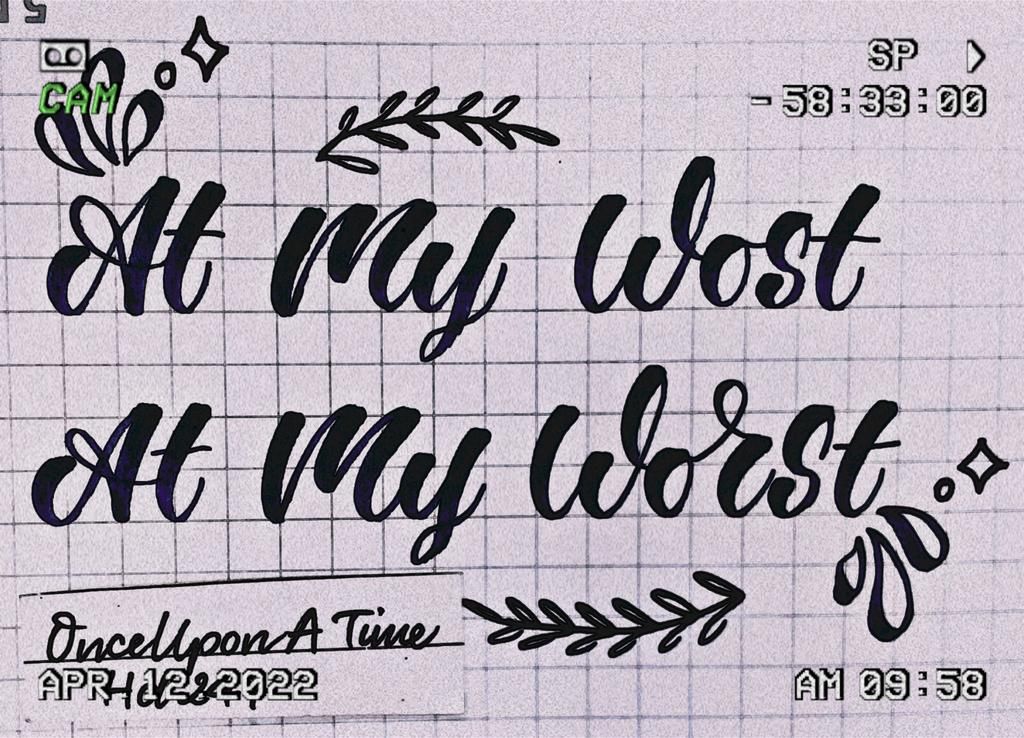 SP
CAM
-58:33:00
At My Wost
At My Worst
Once Upon A Time
APR. 12 2022
AM 09:58